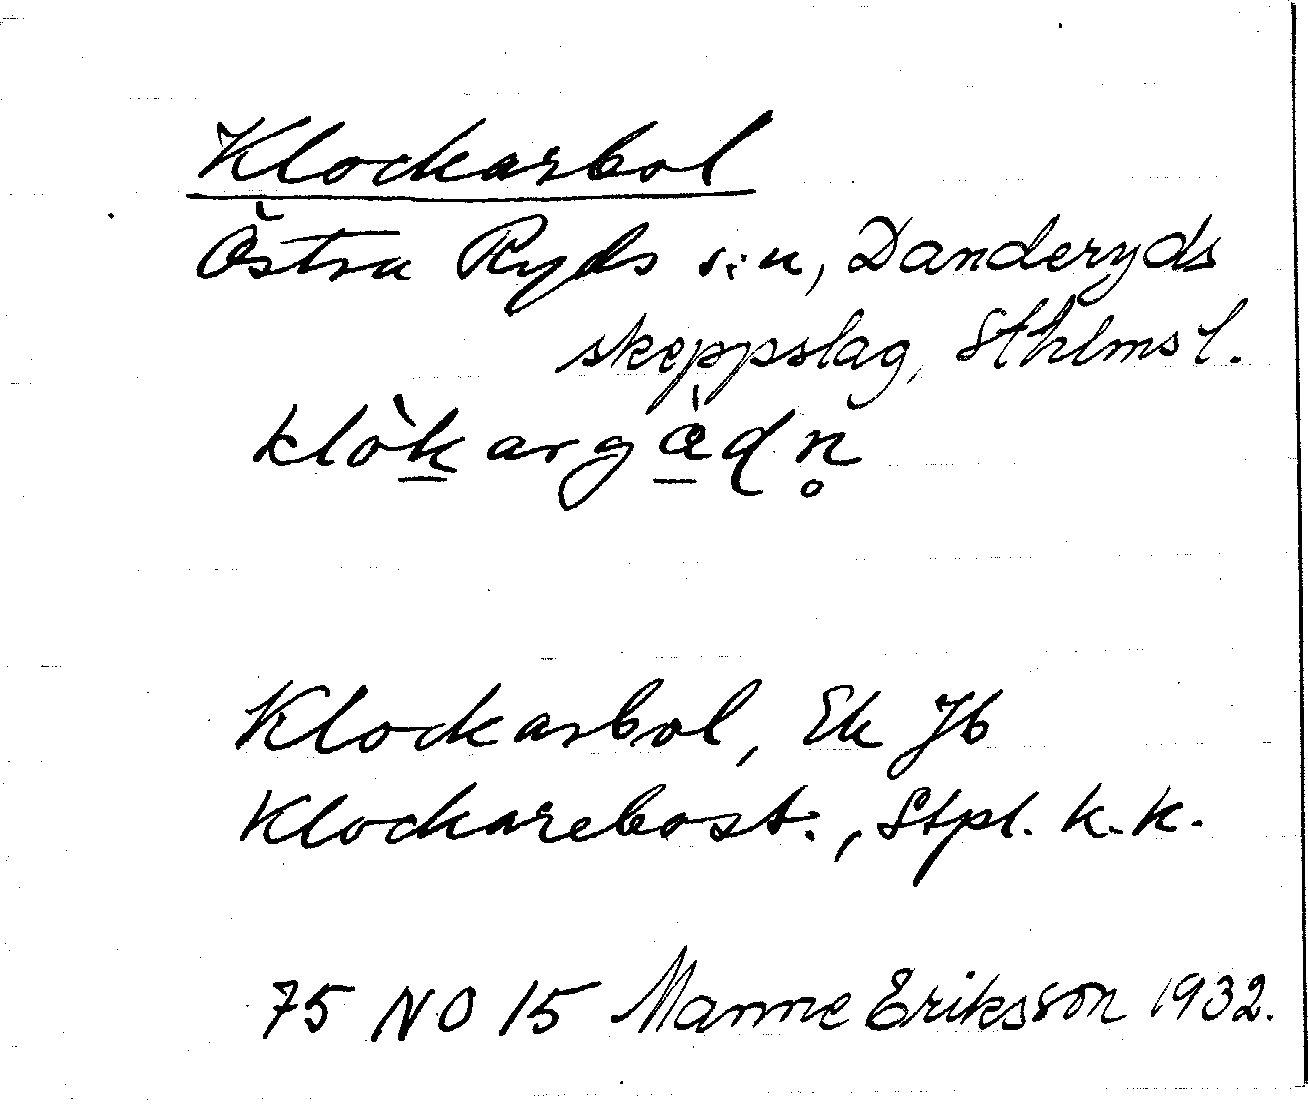 Klockarbol
Östra Ryds s:n, Danderyds
skeppslag, Sthlms l.
klòkargàdn̥
Klockarbol, Ek Jb
Klockarebost:, Stpl. k.k.
75 NO 15 Manne Eriksson 1932.